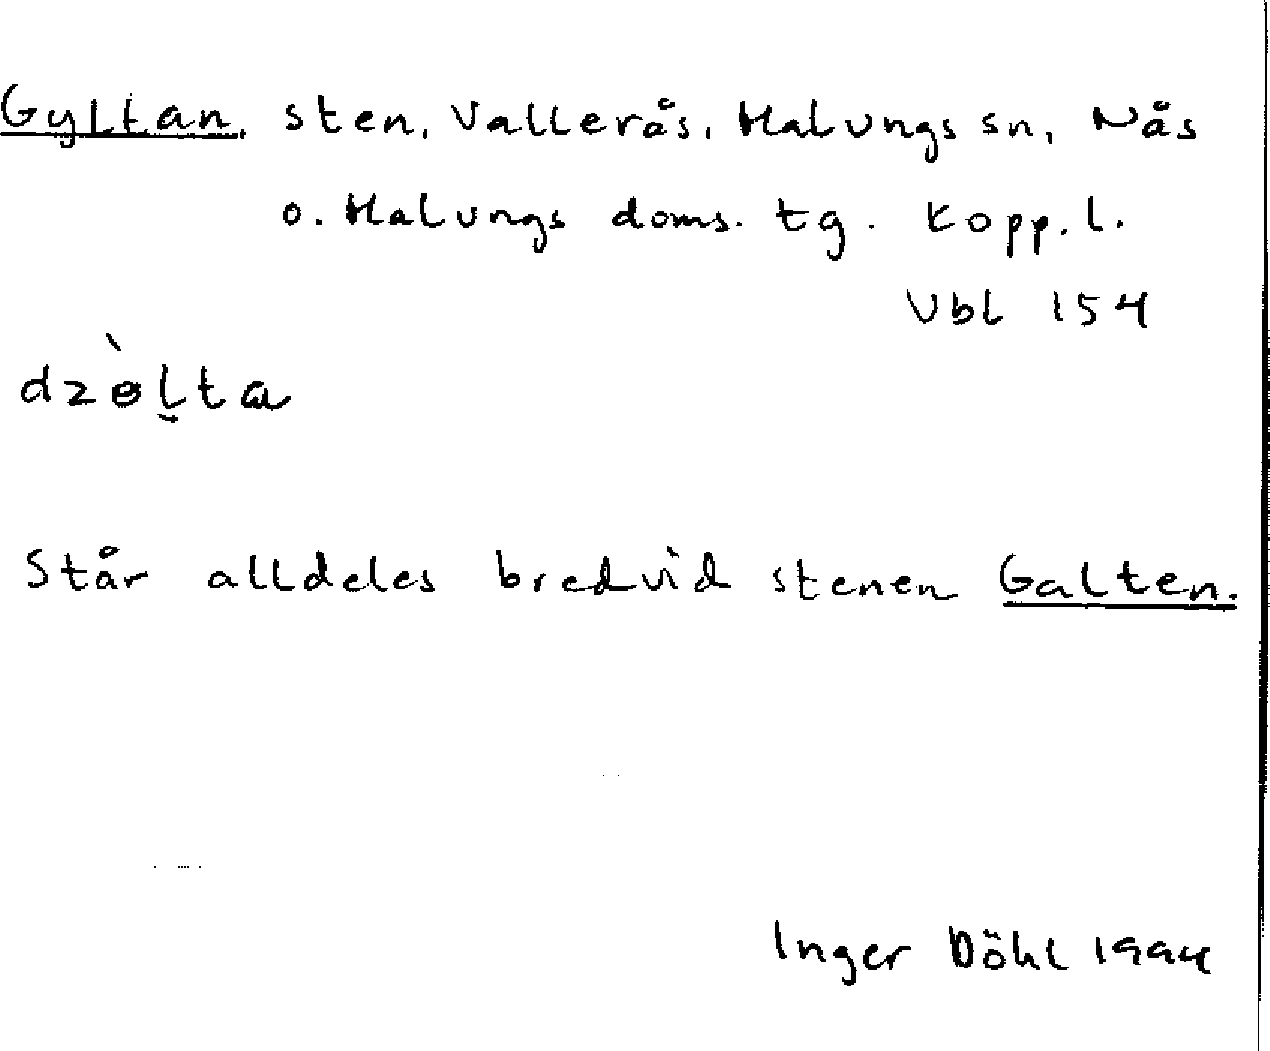 Gyltan, sten, Vallerås, Malungs sn, Nås
o. Malungs doms. tg. Kopp. l.
Vbl 154
dzɵ̀l̯ta
Står alldeles bredvid stenen Galten.
Inger Döhl 1994